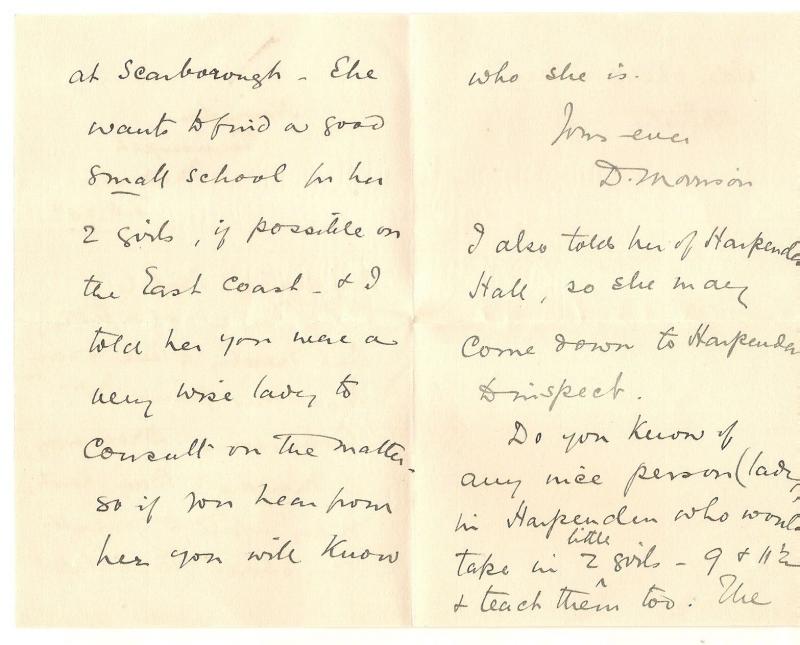 at Scarborough - She
wants to find a good
small school for her
2 girls, if possible on
the East Coast - & I
told her you were a
very wise lady to
consult on the matter -
so if you hear from
her you will know
who she is.
Yours ever
D. Morrison
I also told her of Harpenden
Hall, so she may
come down to Harpenden
to inspect.
Do you know of
any nice person (lady)
in Harpenden who would
take in 2 little girls - 9 & 11½
& teach them too. The